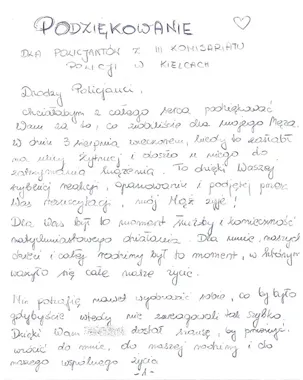 PODZIĘKOWANIE
DLA POLICJANTÓW Z III KOMISARIATU
POLICJI W KIELCACH
Drodzy Policjanci,
chciałabym z całego serca podziękować
Wam za to, co zrobiliście dla mojego Męża.
W dniu 3 sierpnia wieczorem, kiedy to zasłabł
na ulicy Żytniej i doszło u niego do
zatrzymania krążenia. To dzięki Waszej
szybkiej reakcji, opanowaniu i podjętej przez
Was reanimacji, mój Mąż żyje!
Dla Was był to moment służby i konieczność
natychmiastowego działania. Dla mnie, naszych
dzieci i całej rodziny był to moment, w którym
ważyło się całe nasze życie.
Nie potrafię nawet wyobrazić sobie, co by było
gdybyście wtedy nie zareagowali tak szybko.
Dzięki Wam dostał szansę, by
wrócić do mnie, do naszej rodziny i do
naszego wspólnego życia
-1-